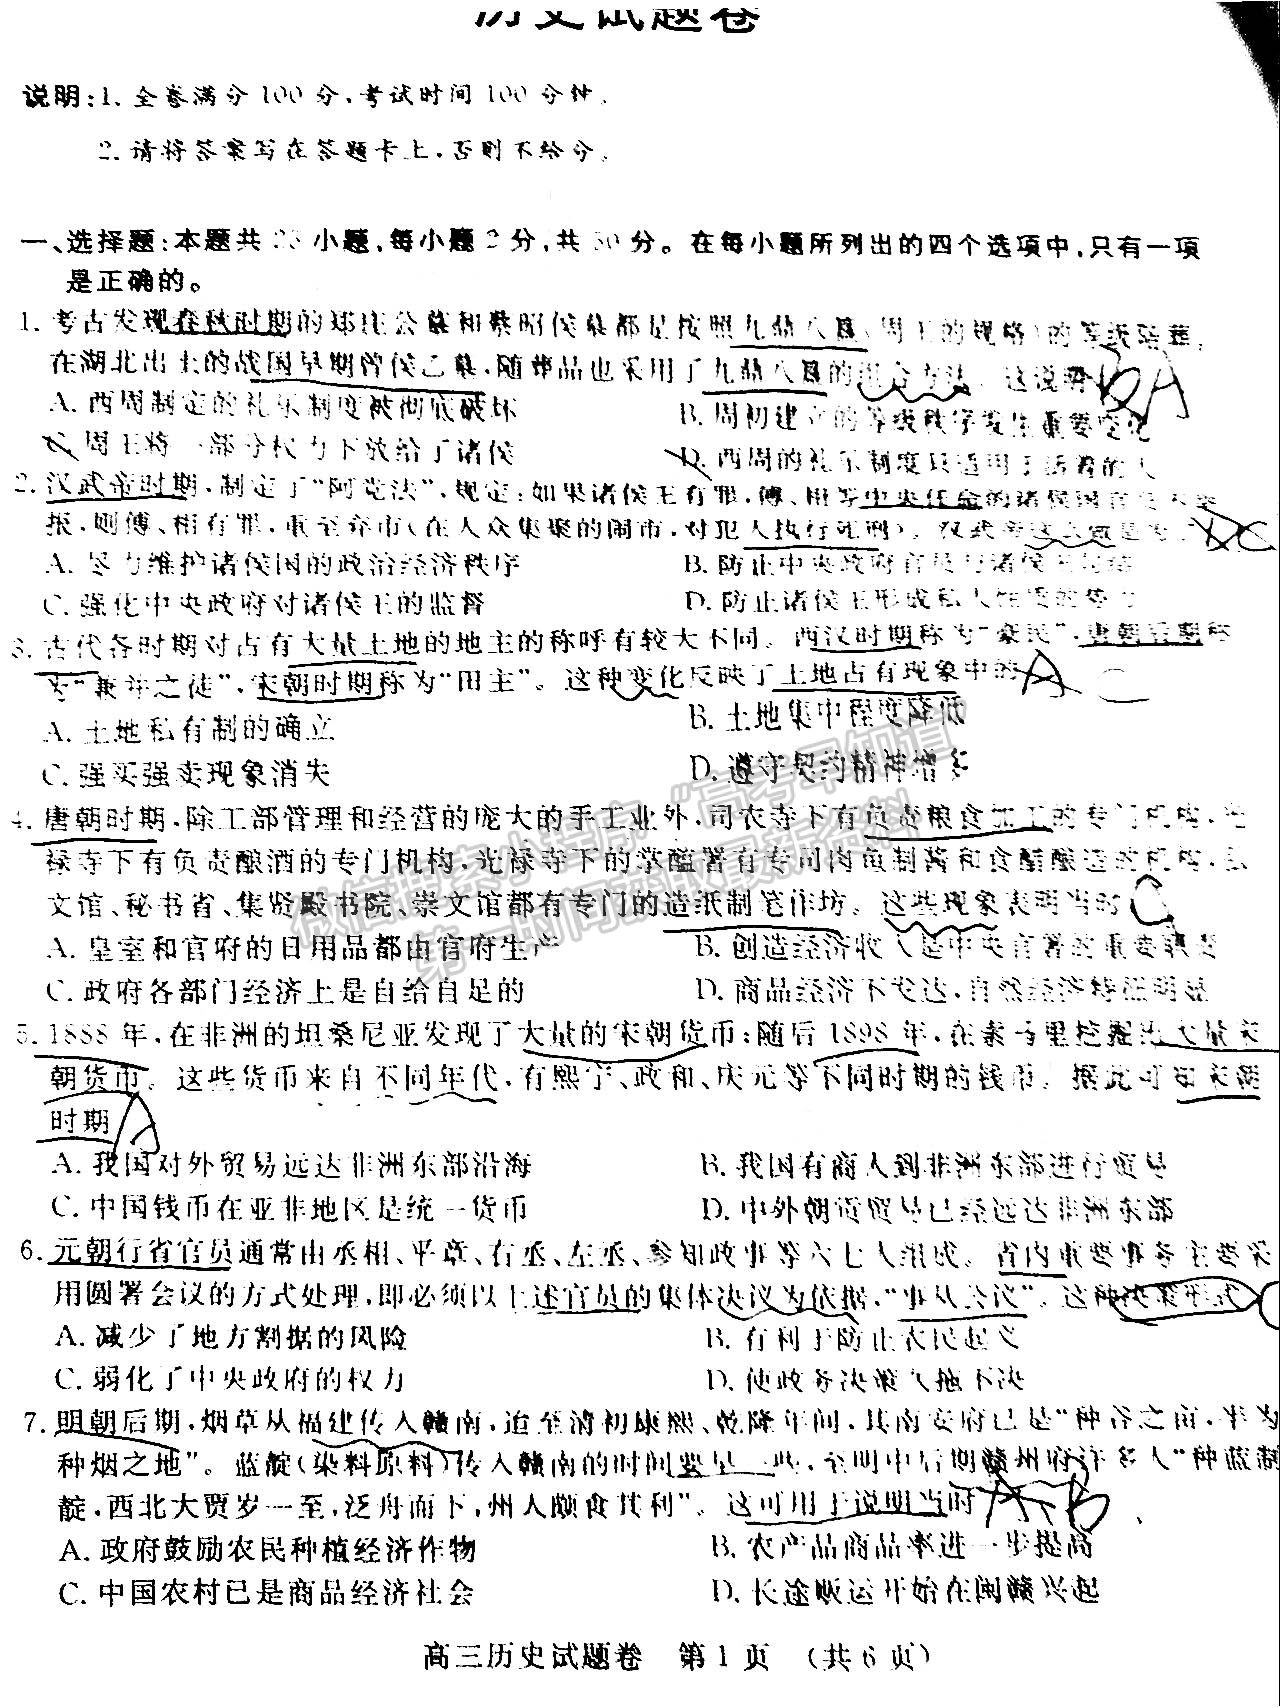 历史试题卷
说明:1. 全卷满分100分,考试时间100分钟。
2. 请将答案写在答题卡上,否则不给分。
一、选择题:本题共25小题,每小题2分,共50分。在每小题所列出的四个选项中,只有一项
是正确的。
1. 考古发现春秋时期的郑庄公墓和蔡昭侯墓都是按照九鼎八簋(周王的规格)的等级陪葬,
在湖北出土的战国早期曾侯乙墓,随葬品也采用了九鼎八簋的组合方法。这说明 BA
A. 西周制定的礼乐制度被彻底破坏
B. 周初建立的等级秩序发生重要变化
C. 周王将一部分权力下放给了诸侯
D. 西周的礼乐制度只适用于活着的人
2. 汉武帝时期,制定了“阿党法”,规定:如果诸侯王有罪,傅、相等中央任命的诸侯国官吏不举
报,则傅、相有罪,重至弃市(在人众集聚的闹市,对犯人执行死刑)。汉武帝这么做是为了 DC
A. 尽力维护诸侯国的政治经济秩序
B. 防止中央政府官员与诸侯王勾结
C. 强化中央政府对诸侯王的监督
D. 防止诸侯王形成私人性质的势力
3. 古代各时期对占有大量土地的地主的称呼有较大不同。西汉时期称为“豪民”,唐朝后期称
为“兼并之徒”,宋朝时期称为“田主”。这种变化反映了土地占有现象中的 A C
A. 土地私有制的确立
B. 土地集中程度降低
C. 强买强卖现象消失
D. 遵守契约精神增多
微信搜索小程序“高考早知道”
第一时间获取最新资料
4. 唐朝时期,除工部管理和经营的庞大的手工业外,司农寺下有负责粮食加工的专门机构,光
禄寺下有负责酿酒的专门机构,光禄寺下的掌醢署有专司肉鱼制酱和食醋酿造的机构,
文馆、秘书省、集贤殿书院、崇文馆都有专门的造纸制笔作坊。这些现象表明当时 C
A. 皇室和官府的日用品都由官府生产
B. 创造经济收入是中央官署的重要职责
C. 政府各部门经济上是自给自足的
D. 商品经济不发达,自然经济特征明显
5. 1888年,在非洲的坦桑尼亚发现了大量的宋朝货币;随后1898年,在索马里挖掘出大量宋
朝货币。这些货币来自不同年代,有熙宁、政和、庆元等不同时期的钱币。据此可知宋朝
时期 A
A. 我国对外贸易远达非洲东部沿海
B. 我国有商人到非洲东部进行贸易
C. 中国钱币在亚非地区是统一货币
D. 中外朝贡贸易已经远达非洲东部
6. 元朝行省官员通常由丞相、平章、右丞、左丞、参知政事等六七人组成。省内重要事务主要采
用圆署会议的方式处理,即必须以上述官员的集体决议为依据,“事从会议”。这种决策形式
A. 减少了地方割据的风险
B. 有利于防止农民起义
C. 弱化了中央政府的权力
D. 使政务决策久拖不决
7. 明朝后期,烟草从福建传入赣南,迨至清初康熙、乾隆年间,其南安府已是“种谷之亩,半为
种烟之地”。蓝靛(染料原料)传入赣南的时间要早一些,至明中后期赣州府许多人“种蓝制
靛,西北大贾岁一至,泛舟而下,州人颇食其利”。这可用于说明当时 A B
A. 政府鼓励农民种植经济作物
B. 农产品商品率进一步提高
C. 中国农村已是商品经济社会
D. 长途贩运开始在闽赣兴起
高三历史试题卷 第1页 (共6页)